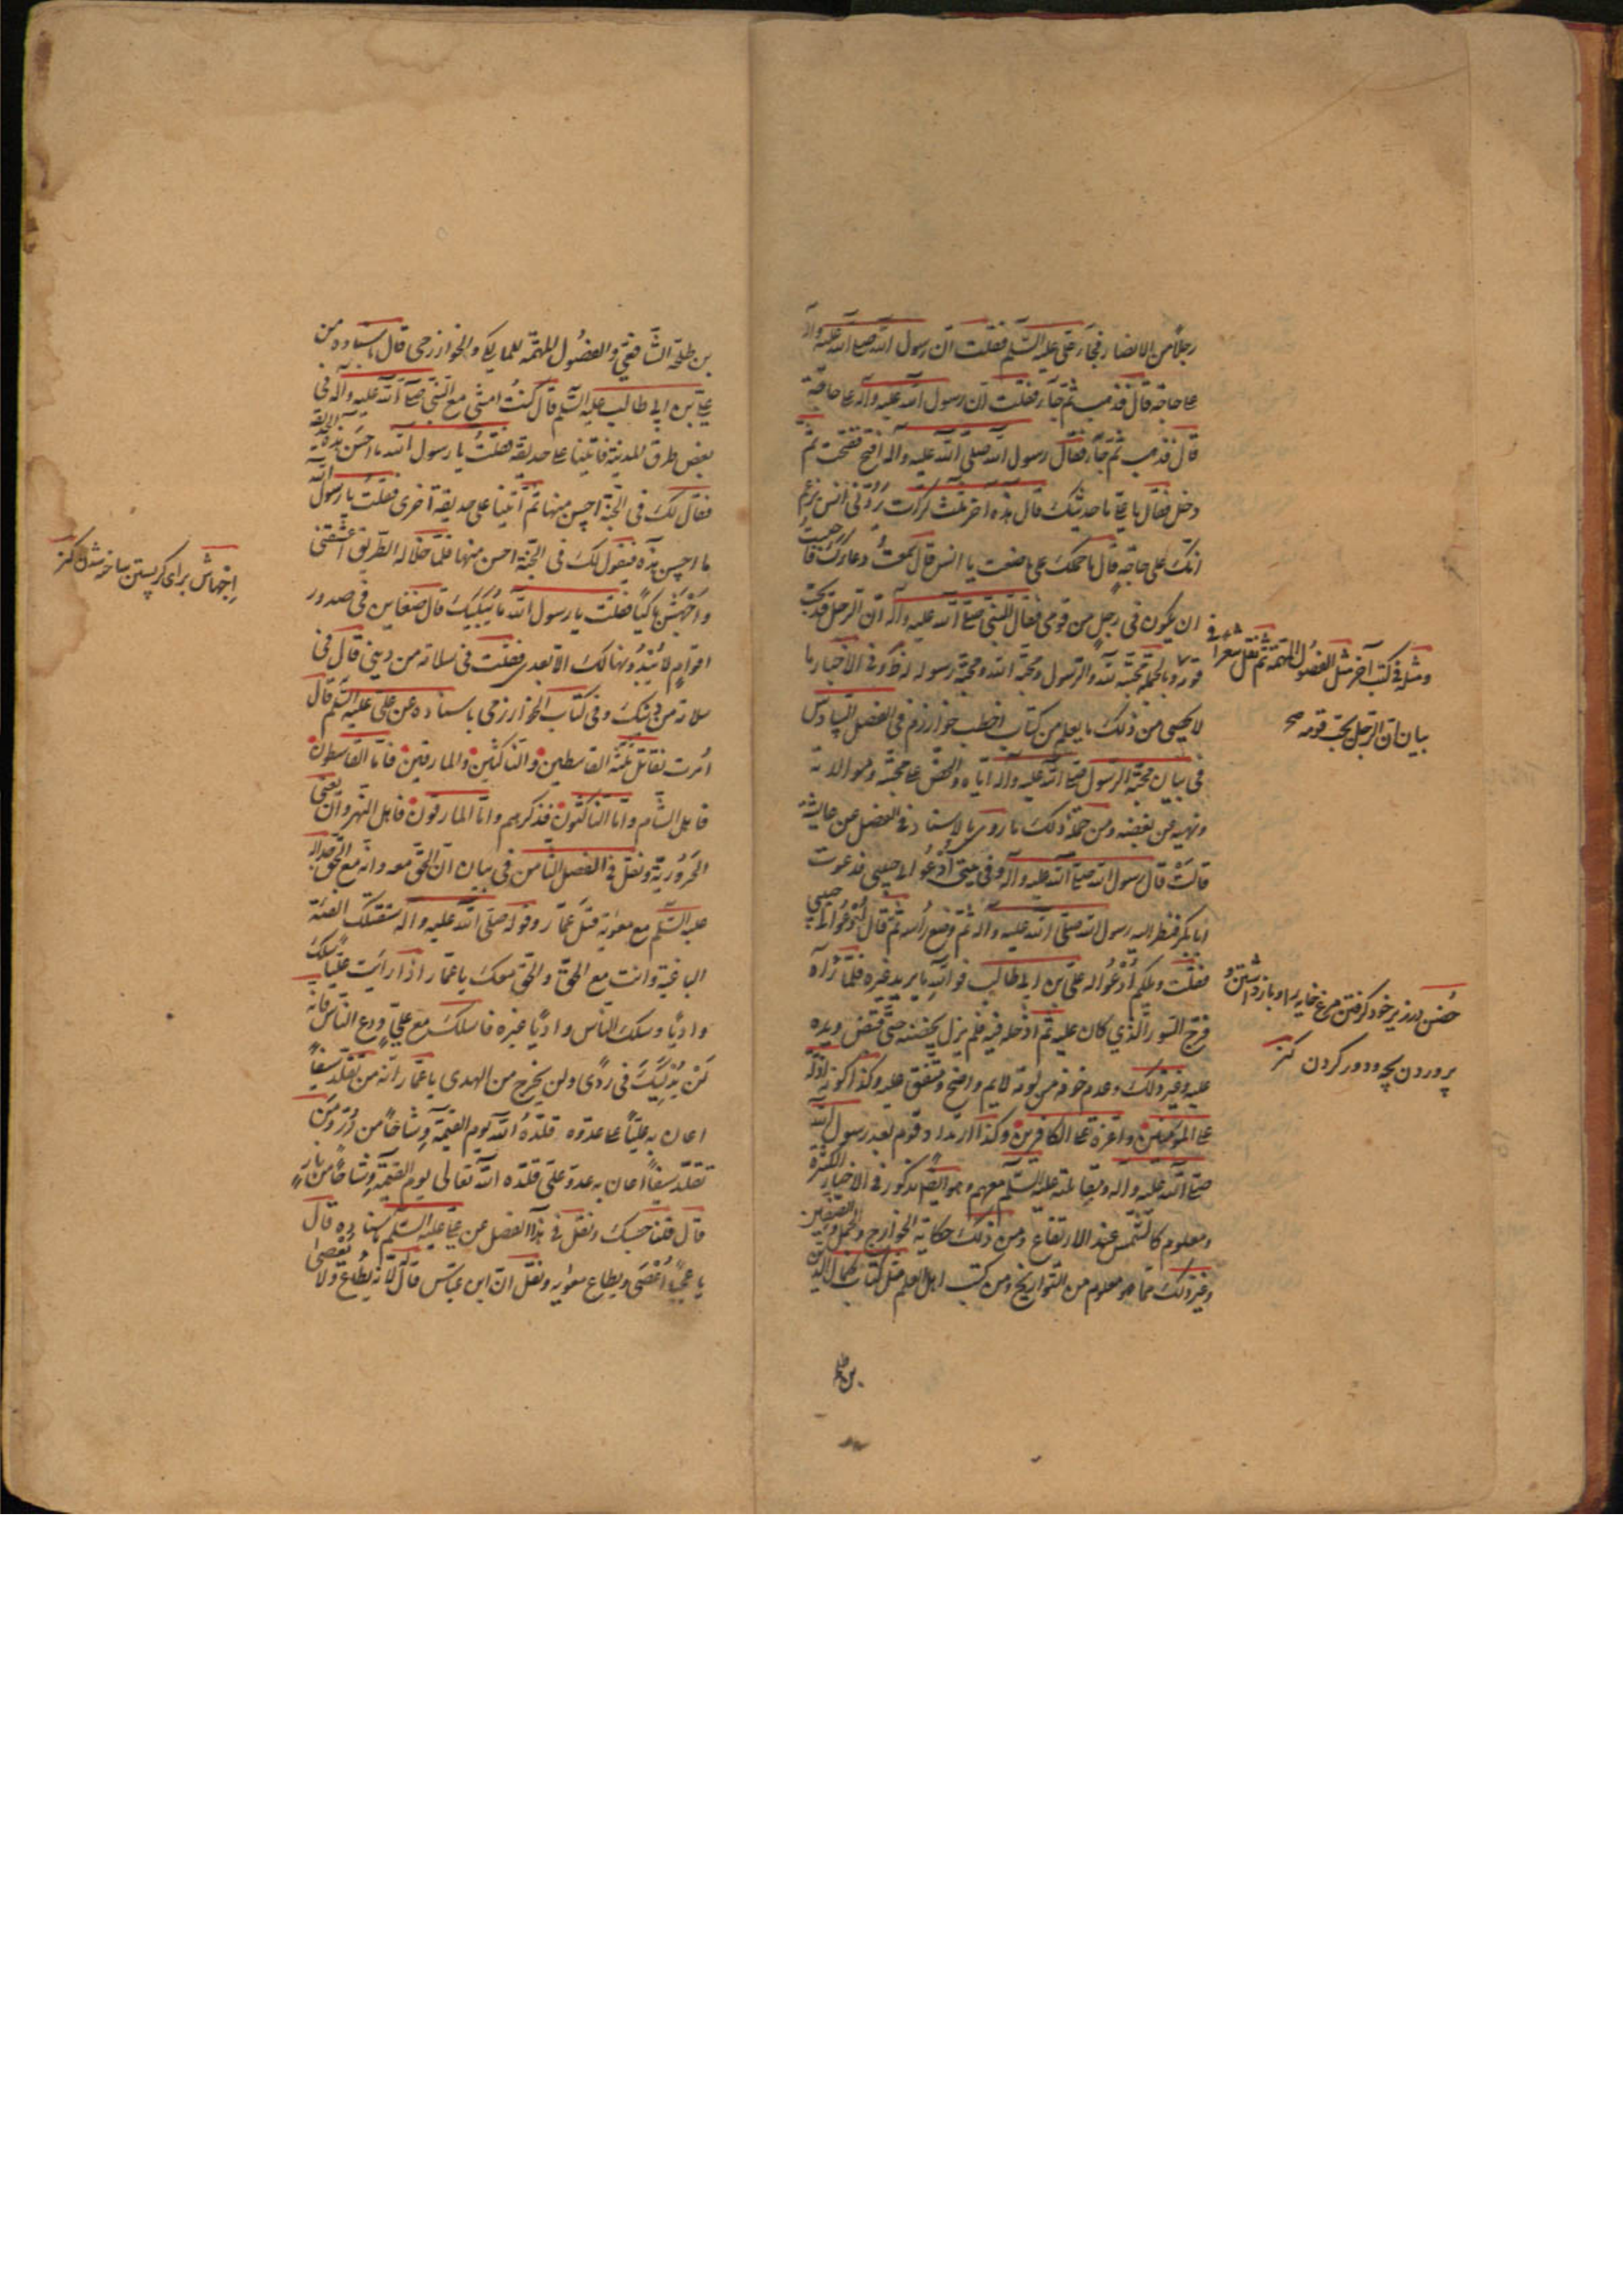 رجلا من الانصار فجاء على عليه السلم فقلت ان رسول الله صلى الله عليه واله
على حاجة قال فذهب ثم جاء فقلت ان رسول الله عليه واله على حاجة
قال فذهب ثم جاء فقال رسول الله صلى الله عليه واله افتح ففتحت ثم
دخل فقال يا على ما حديثك قال هذه اخر ثلث كرات ردنى انس يزعم
انك على حاجة قال ما حملك على ما صنعت يا انس قال سمعت دعاءك فاحببت
ان يكون فى رجل من قومى فقال النبى صلى الله عليه واله ان الرجل قد يحب
قومه وبالجملة محبته لله والرسول ومحبة الله ومحبة رسوله له مذكور فى الاخبار ما
لا يحصى من ذلك ما يعلم من كتاب اخطب خوارزم فى الفصل السادس
فى بيان محبة الرسول صلى الله عليه واله اياه والحض على محبته وموالاته
ونهيه عن بغضه ومن جملة ذلك ما روى بالاسناد فى الفصل عن عايشة
قالت قال رسول الله صلى الله عليه وآله وفى بيتى ادعوا لى حبيبى فدعوت
ابا بكر فنظر اليه رسول الله صلى الله عليه واله ثم وضع رأسه ثم قال ادعوا لى حبيبى
فقلت ويلكم ادعوا له على بن ابى طالب فوالله ما يريد غيره فلما رآه
فرج الثوب الذي كان عليه ثم ادخله فيه فلم يزل يحضنه حتى قبض ويده
عليه وغير ذلك وعدم خوفه من لومة لايم واضح ومتفق عليه وكذا كونه اذلة
على المؤمنين واعزة على الكافرين وكذا ارتداد قوم بعد رسول الله
صلى الله عليه واله ومقاتلته عليه السلم معهم وهو ايضا مذكور فى الاخبار الكثيرة
ومعلوم كالشمس عند الارتفاع ومن ذلك حكاية الخوارج والجمل والصفين
وغير ذلك مما هو معلوم من التواريخ ومن كتب اهل العلم مثل كتاب كمال الدين
بن طلحة
ومثله فى كتب آخر مثل الفصول المهمة ثم نقل شعرا فى
بيان ان الرجل يحب قومه صح
حضن در زير خود گرفتن مرغ خايه را و باز داشتن و
پروردن بچه و دور كردن كنز
بن طلحة الشافعى والفصول المهمة للمالكى والخوارزمى قال باسناده من
على بن ابى طالب عليه السلم قال كنت امشى مع النبى صلى الله عليه وآله فى
بعض طرق المدينة فاتينا على حديقة فقلت يا رسول الله ما احسن هذه الحديقة
فقال لك فى الجنة احسن منها ثم اتينا على حديقة اخرى فقلت يا رسول الله
ما احسن هذه فيقول لك فى الجنة احسن منها فلما خلا له الطريق اعتنقنى
واجهش باكيا فقلت يا رسول الله ما يبكيك قال ضغاين فى صدور
اقوام لا يبدونها لك الا بعدى فقلت فى سلامة من دينى قال فى
سلامة من دينك وفى كتاب الخوارزمى باسناده عن على عليه السلم قال
امرت بقتال ثلثة القاسطين والناكثين والمارقين فاما القاسطون
فاهل الشام واما الناكثون فذكرهم واما المارقون فاهل النهروان يعنى
الحرورية ونقل فى الفصل الثامن فى بيان ان الحق معه وانه مع الحق جداله
عليه السلم مع معوية قتل عمار وقوله صلى الله عليه واله ستقتلك الفئة
الباغية وانت مع الحق والحق معك يا عمار اذا رايت عليا سلك
واديا وسلك الناس واديا غيره فاسلك مع على ودع الناس فانه
لن يدليك فى ردى ولن يخرج من الهدى يا عمار انه من تقلد سيفا
اعان به عليا على عدوه قلده الله يوم القيمة وشاحا من در ومن
تقلد سيفا اعان به عدو على قلده الله تعالى يوم القيمة وشاحا من نار
قال قلنا حسبك ونقل فى هذا الفصل عن على عليه السلم باسناده قال
يا عجبا اعصى ويطاع معوية ونقل ان ابن عباس قال لانه يطاع ولا يعصى
اجهاش براى گريستن ساخته شدن كنز